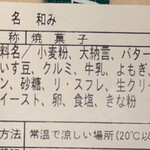 名 和み
称 焼菓子
料名／小麦粉、大納言、バター
いんげん豆、クルミ、牛乳、よもぎ
ン、砂糖、リ・スフレ、生クリー
イースト、卵、食塩、きな粉
方法 常温で涼しい場所(20℃以